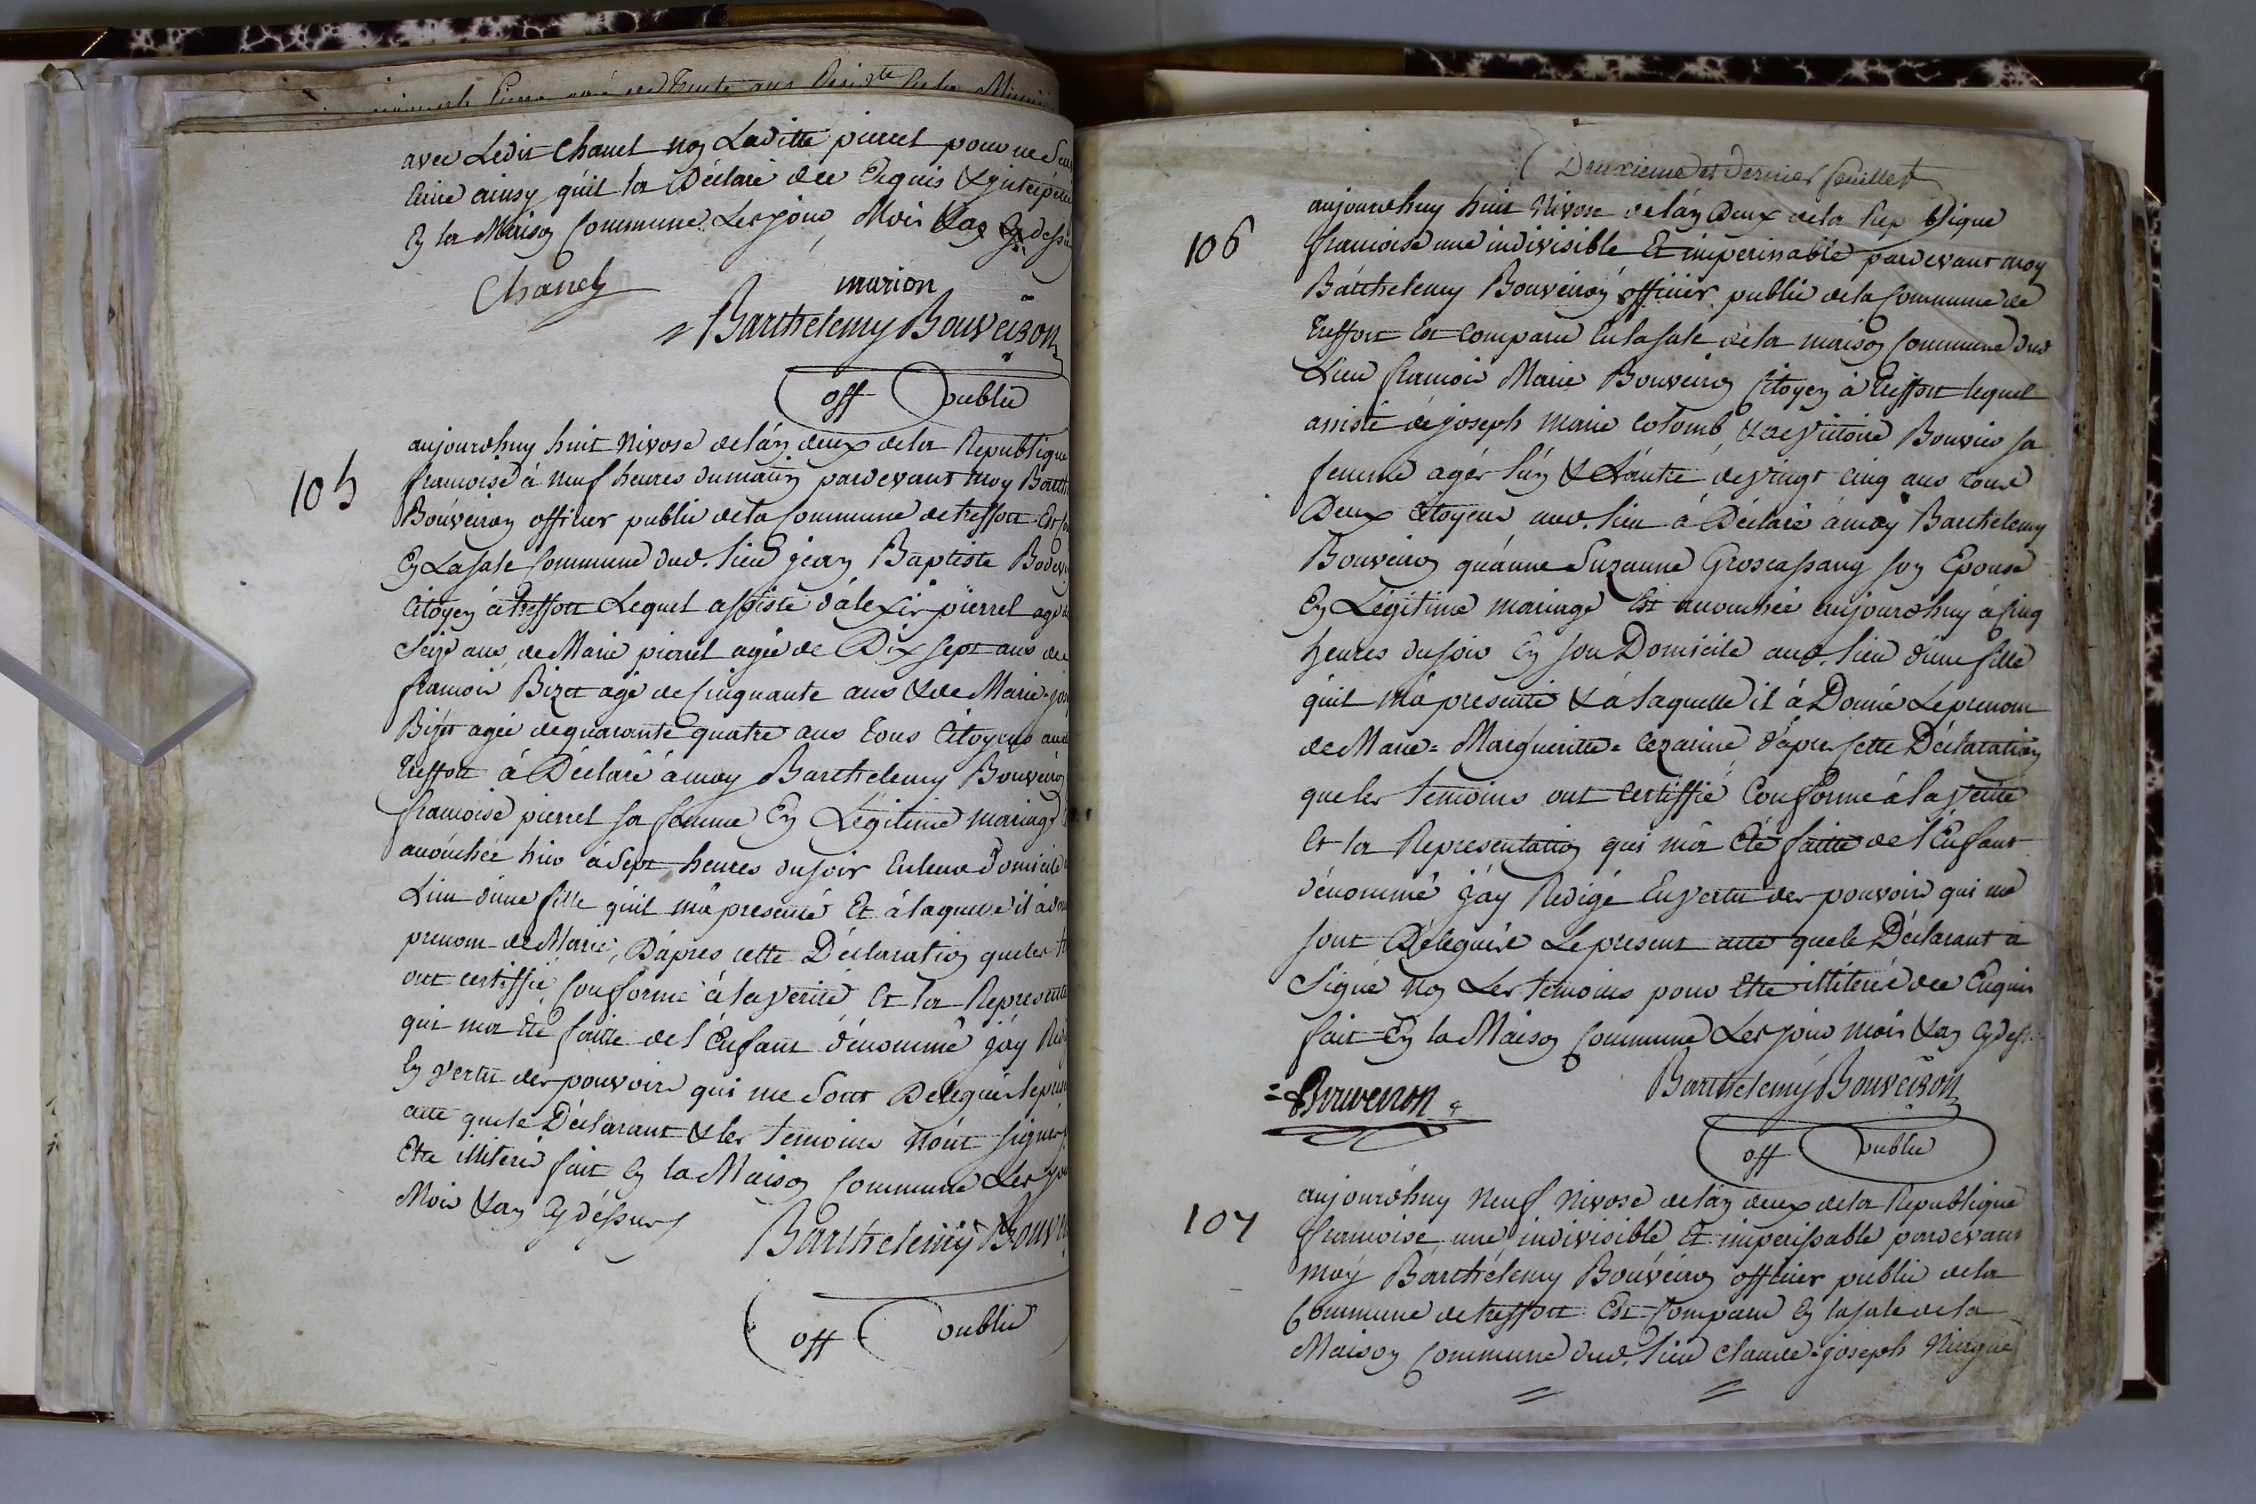 avec Ledit Chanel noz Laditte pierrel pour ne
ainsy qu'il la Déclaré de Enquis &
En la Maison Commune Les jour Mois &an Cydessus
Chanel
marion
Barthelemy Bouveiron
off public
105
aujourdhuy huit Nivose delán deux dela Republique
francoise à neuf heures dumatin pardevant moy Barth
Bouveiron officier public dela Commune detreffort Est
En Lasale Commune dud. lieu jean Baptiste
Citoyen à treffort Lequel assisté dálexis pierrel agé
Seize ans, de Marie pierrel agée de Dix sept ans de
francois Bizet agé de Cinquante ans & de Marie =
Bizet agée dequarante quatre ans tous Citoyens aud
treffort à Déclaré àmoy Barthelemy Bouveiron
francoise pierrel sa femme En Légitime mariage
acouchée hier à Sept heures dusoir Enleur Domicile
Lieu d'une fille qu'il m'à presenté Et àlaquelle il à
prenom de Marie, Dápres cette Déclaration queles
ont certiffié Conforme àlaverité, Et la
qui ma Eté faitte de l'Enfant dénommé j'áy
En vertu des pouvoirs qui me Sont Delegués lepresent
acte quele Déclarant & les temoins n'ont signer
Etre illiteré fait En la Maison Commune Les jour
Mois &an Cydéssus
Barthelemy
off public
( Deuxieme et dernier feuillet
106
aujourdhuy huit Nivose delán Deux dela Rep blique
francoise une indivisible Et imperissable pardevant moy
Barthelemy Bouveiron officier public dela Commune de
treffort Est Comparu Enlasale dela maison Commune dud
Lieu francois Marie Bouveiron Citoyen à treffort lequel
assisté de joseph marie Colomb, &de victoire Bouvier sa
femme agés l'un & L'autre de vingt cinq ans tous
Deux Citoyens aud. lieu à Déclaré àmoy Barthelemy
Bouveiron quánne Suzanne Groscassang son Epouse
En Légitime mariage Est acouchée aujourdhuy à Cinq
heures dusoir En son Domicile aud. lieu d'une fille
qu'il m'à presenté & à laquelle il à Donné Leprenom
de Marie = Margueritte = Cezarine, d'apres Cette Déclaration
queles temoins ont Certiffié Conforme àlaverité
Et la Representation qui m'à Eté faitte de l'Enfant
dénommé j'áy Redigé Envertu des pouvoirs qui me
sont Délegués Lepresent acte quele Déclarant à
Signé Noz Les temoins pour Etre illiteré de Enquis
fait En la Maison Commune Les jour mois &an Cydess
= Bouveiron
Barthelemy Bouveiron
off public
107
aujourdhuy Neuf Nivose delán deux dela Republique
francoise une indivisible Et imperissable pardevant
moy Barthélemy Bouveiron officier public dela
Commune detreffort Est Comparu En lasale de la
Maison Commune dud. lieu Claude = joseph